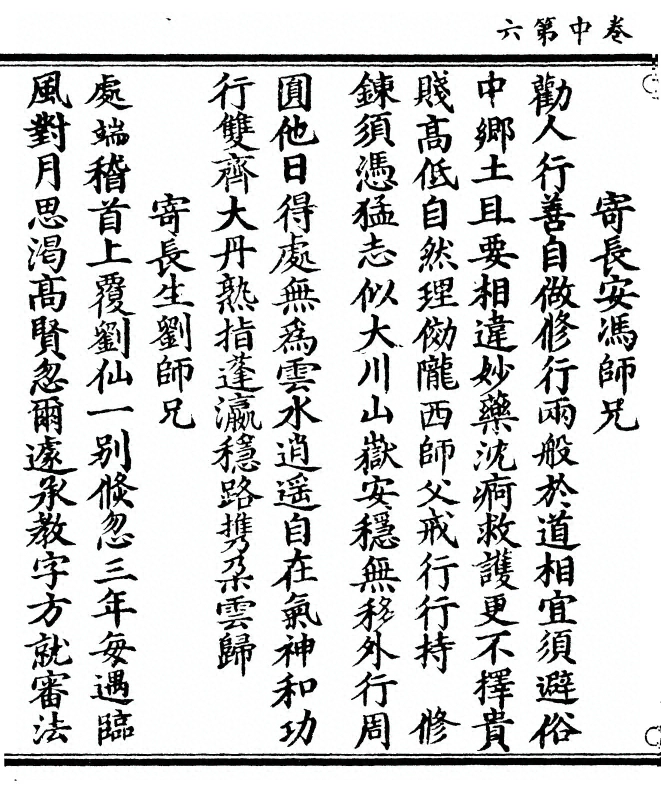 卷中第六
寄長安馮師兄
勸人行善自做修行兩般於道相宜須避俗
中鄉土且要相違妙藥沈痾救護更不擇貴
賤高低自然理効隴西師父戒行行持　修
鍊須憑猛志似大川山嶽安穩無移外行周
圓他日得處無為雲水逍遥自在氣神和功
行雙齊大丹熟指蓬瀛穩路携朶雲歸
寄長生劉師兄
處端稽首上覆劉仙一别倐忽三年每遇臨
風對月思渴髙賢忽爾遽承教字方就審法